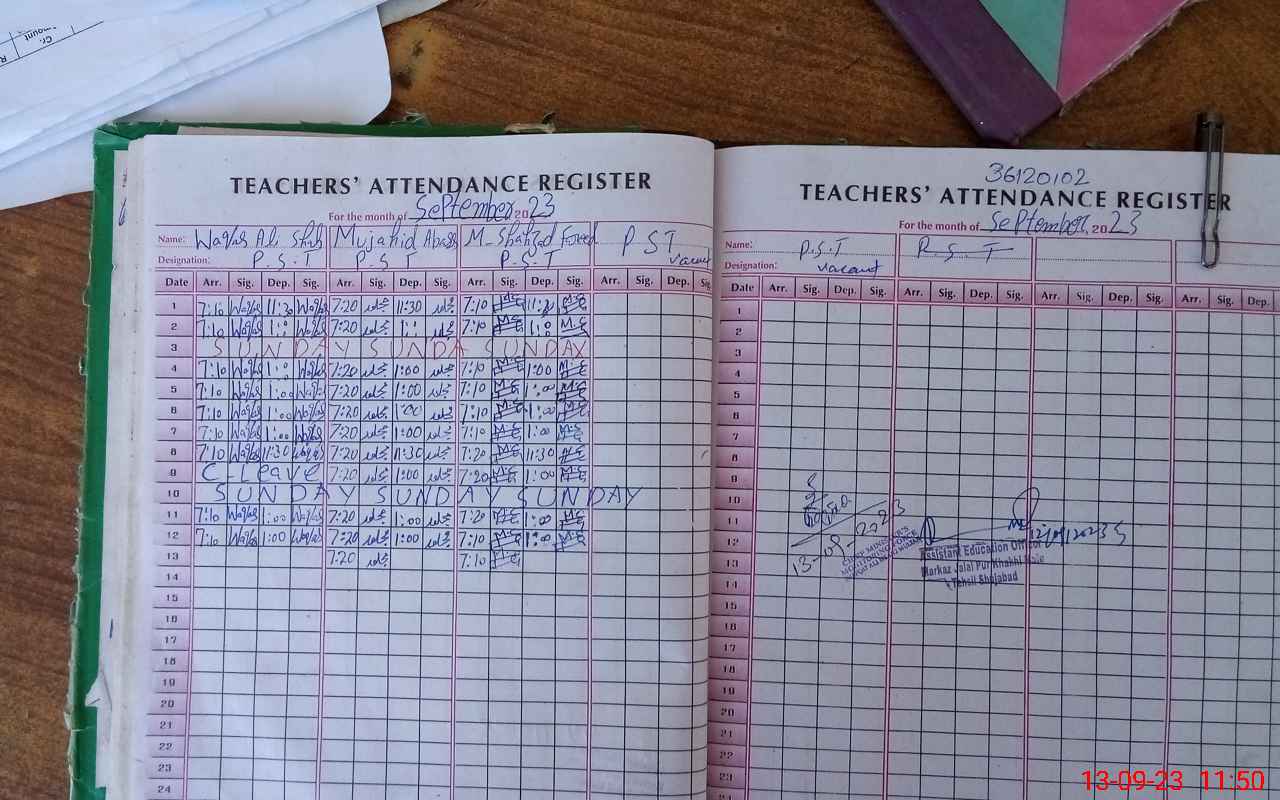 Cr.
mount
TEACHERS' ATTENDANCE REGISTER
For the month of September 2023
Name: Waqas Ali Shah Mujahid Abass M-Shahzad Fareed P S T
Designation: P.S.T P.S T P.S.T vacant
Date Arr. Sig. Dep. Sig. Arr. Sig. Dep. Sig. Arr. Sig. Dep. Sig. Arr. Sig. Dep. Sig.
1 7:10 Waqas 11:30 Waqas 7:20 مجاہد 11:30 مجاہد 7:10 11:30
2 7:10 Waqas 1:0 Waqas 7:20 مجاہد 1: مجاہد 7:10 1:0
3 SUNDAY SUNDA SUNDAY
4 7:10 Waqas 1:0 Waqas 7:20 مجاہد 1:00 مجاہد 7:10 1:00
5 7:10 Waqas 1:00 Waqas 7:20 مجاہد 1:00 مجاہد 7:10 1:00
6 7:10 Waqas 1:00 Waqas 7:20 مجاہد 1:00 مجاہد 7:10 1:00
7 7:10 Waqas 1:00 Waqas 7:20 مجاہد 1:00 مجاہد 7:10 1:00
8 7:10 Waqas 11:30 Waqas 7:20 مجاہد 11:30 مجاہد 7:20 11:30
9 C-Leave 7:20 مجاہد 1:00 مجاہد 7:20 1:00
10 SUNDAY SUNDAY SUNDAY
11 7:10 Waqas 1:00 Waqas 7:20 مجاہد 1:00 مجاہد 7:20 1:00
12 7:10 Waqas 1:00 Waqas 7:20 مجاہد 1:00 مجاہد 7:10 1:00
13 7:20 مجاہد 7:10
14
15
16
17
18
19
20
21
22
23
24
36120102
TEACHERS' ATTENDANCE REGISTER
For the month of September, 2023
Name: P.S.T P.S.T
Designation: vacant
Date Arr. Sig. Dep. Sig. Arr. Sig. Dep. Sig. Arr. Sig. Dep. Sig. Arr. Sig. Dep.
1
2
3
4
5
6
7
8
9
10
11
12
13
14
15
16
17
18
19
20
21
22
23
13-09-2023
CHIEF MINISTER'S
MONITORING FORCE
Assistant Education Officer
Markaz Jalal Pur Khakhi
Tehsil Shujabad
13-09-23 11:50